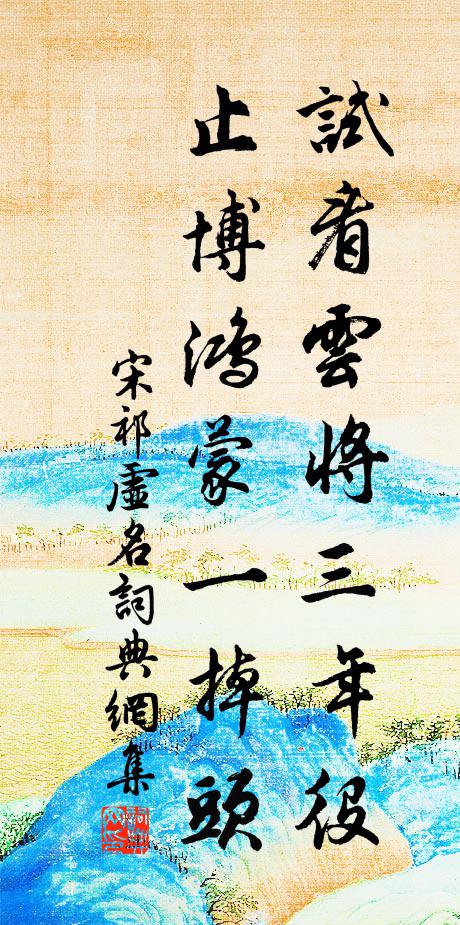 試看雲將三年役
止博鴻蒙一掉頭
宋祁虛名詞典網集